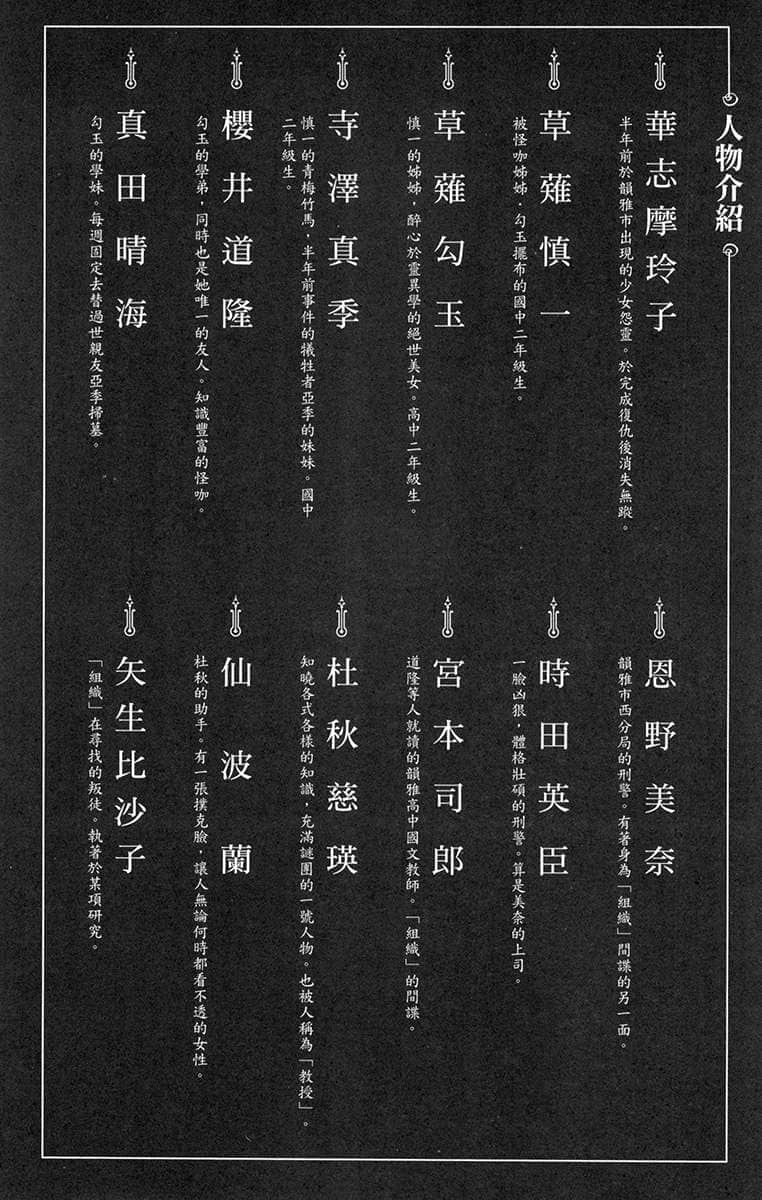 人物介紹
華志摩玲子
半年前於韻雅市出現的少女怨靈。於完成復仇後消失無蹤。
草薙慎一
被怪咖姊姊．勾玉擺布的國中二年級生。
草薙勾玉
慎一的姊姊，醉心於靈異學的絕世美女。高中二年級生。
寺澤真季
慎一的青梅竹馬，半年前事件的犧牲者亞季的妹妹。國中
二年級生。
櫻井道隆
勾玉的學弟，同時也是她唯一的友人。知識豐富的怪咖。
真田晴海
勾玉的學妹。每週固定去替過世親友亞季掃墓。
恩野美奈
韻雅市西分局的刑警。有著身為「組織」間諜的另一面。
時田英臣
一臉凶狠，體格壯碩的刑警。算是美奈的上司。
宮本司郎
道隆等人就讀的韻雅高中國文教師。「組織」的間諜。
杜秋慈瑛
知曉各式各樣的知識，充滿謎團的一號人物。也被人稱為「教授」。
仙波蘭
杜秋的助手。有一張撲克臉，讓人無論何時都看不透的女性。
矢生比沙子
「組織」在尋找的叛徒。執著於某項研究。